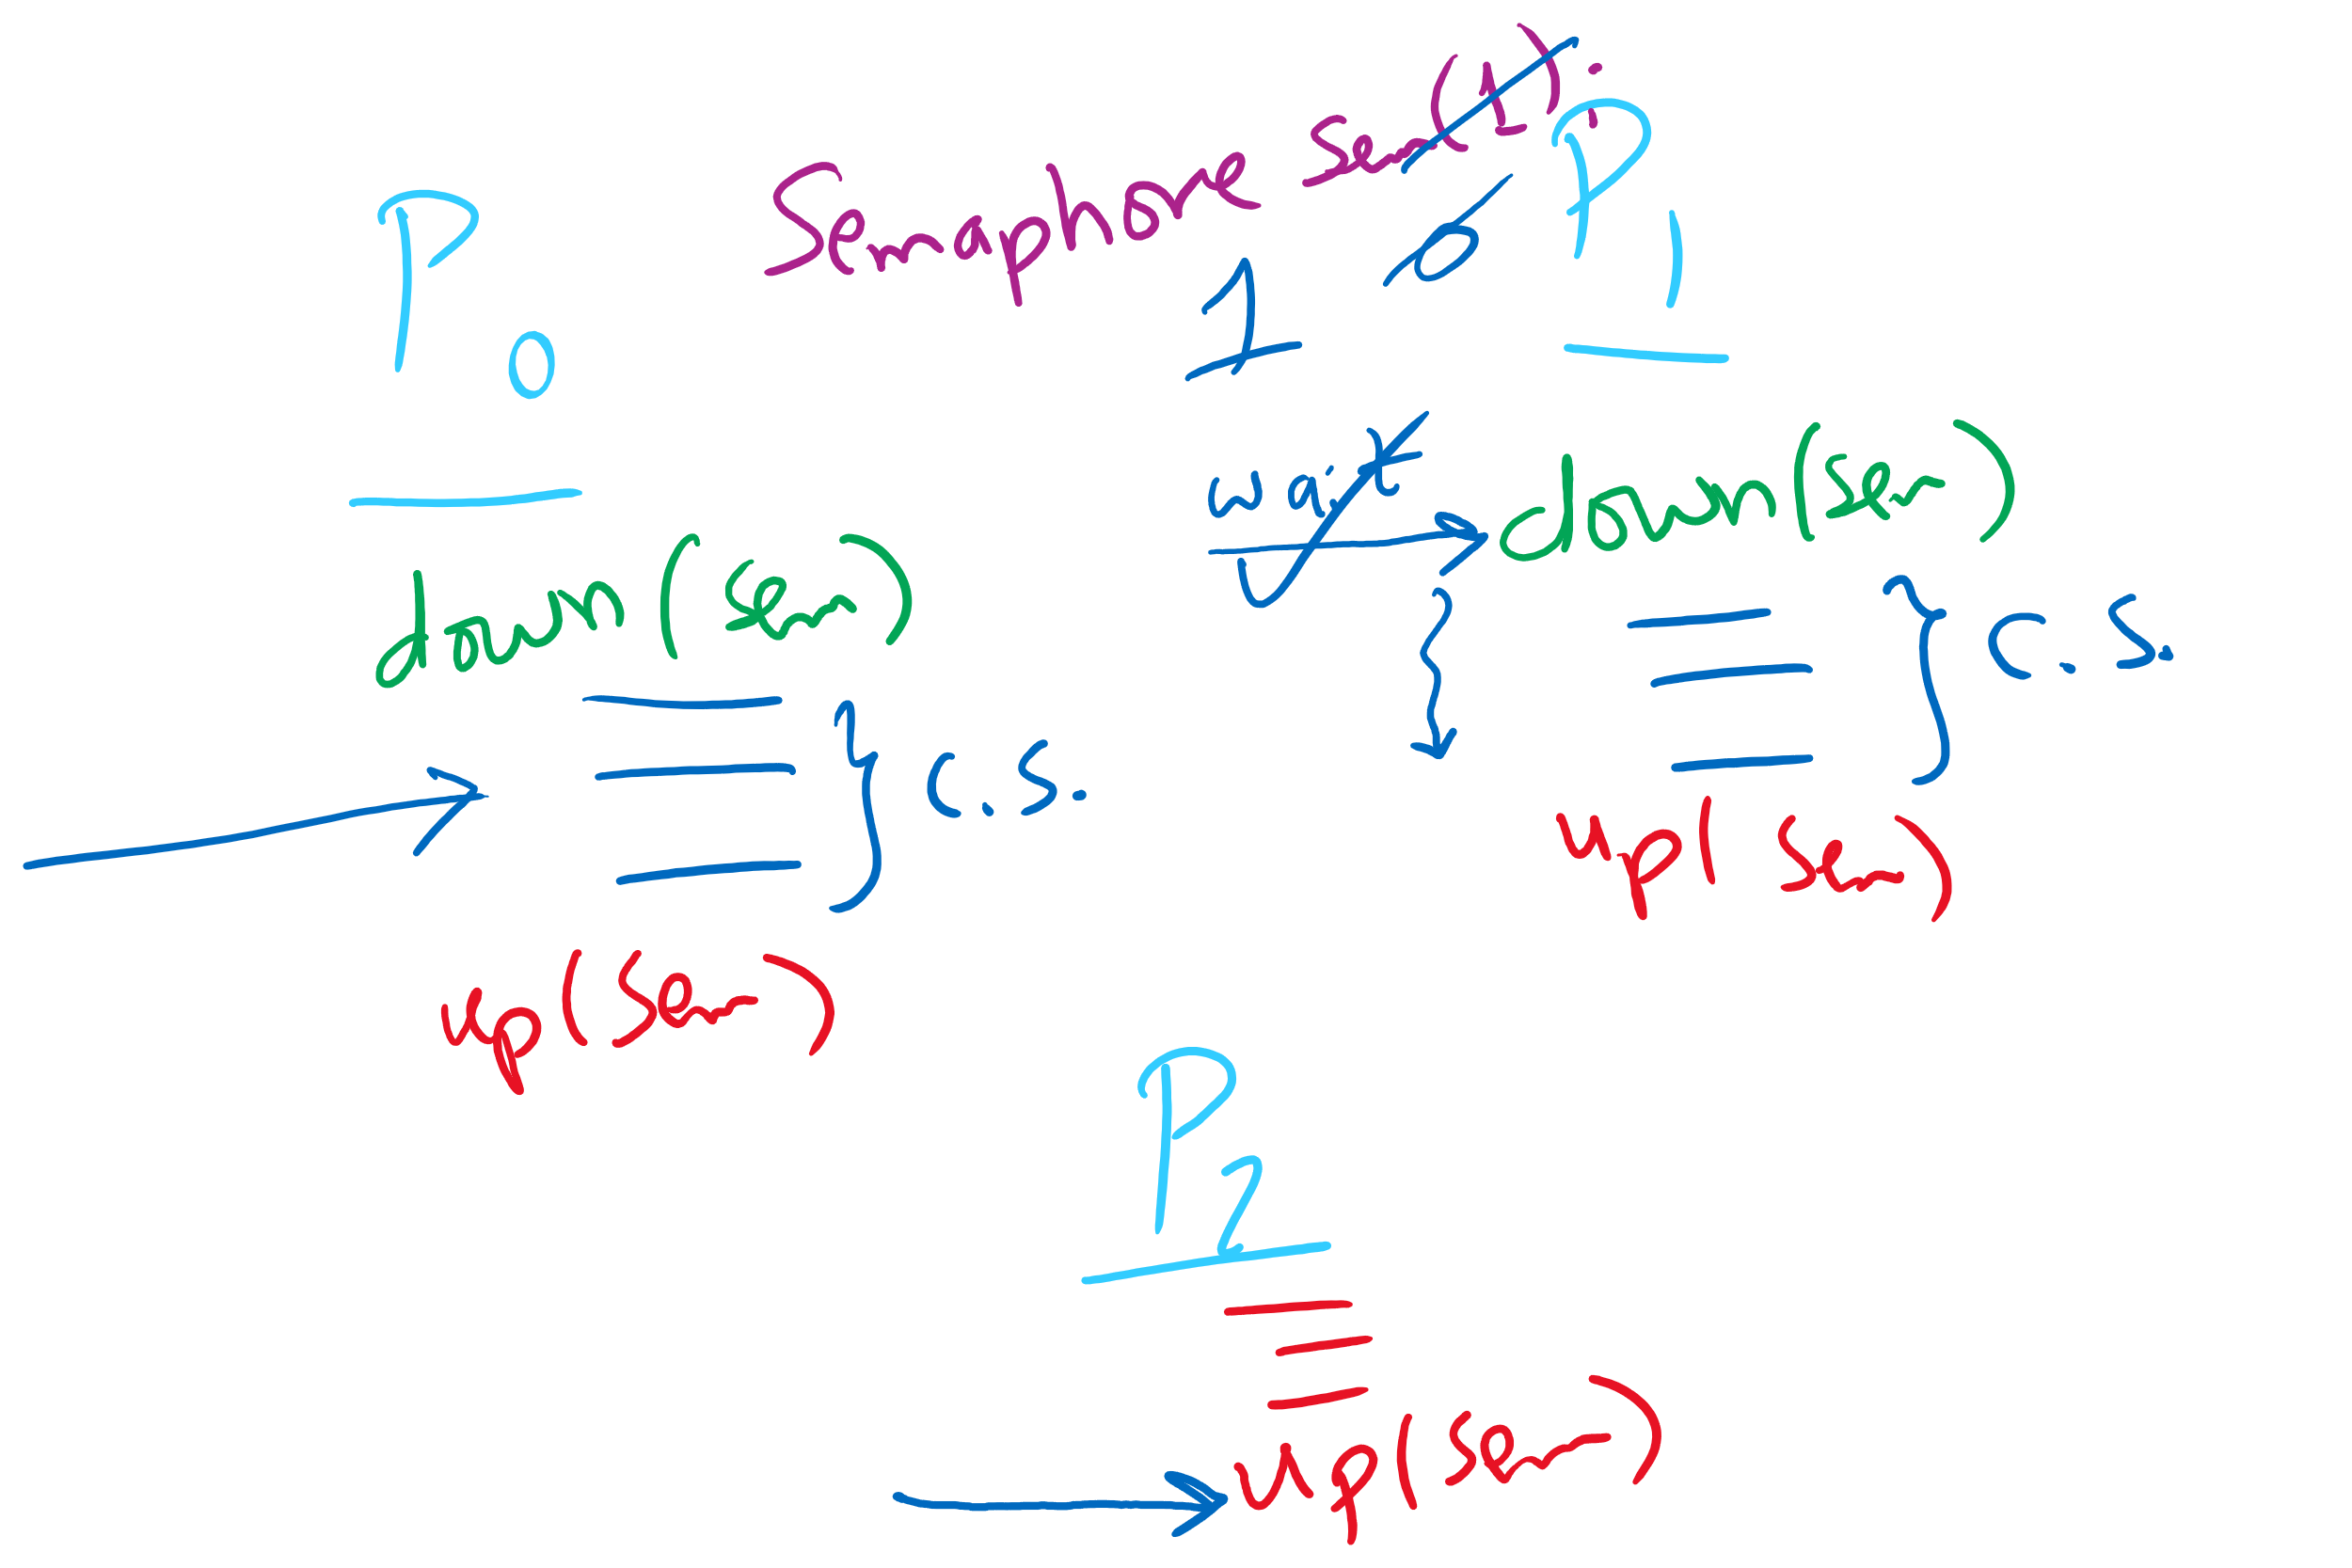 Semaphore sem(1);
0
1
P0
down(sem)
C.S.
up(sem)
P1
wait
down(sem)
C.S.
up(sem)
P2
up(sem)